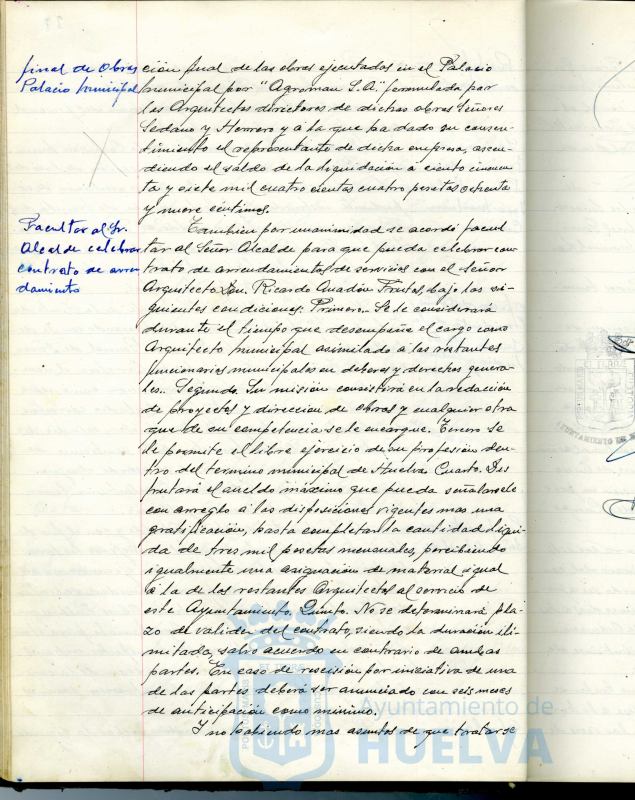 final de Obras
Palacio Municipal
ción final de las obras ejecutadas en el Palacio
Municipal por "Agroman S.A." formulada por
los Arquitectos directores de dichas obras Señores
Sedano y Herrero y a la que ha dado su consen-
timiento el representante de dicha empresa, ascen-
diendo el saldo de la liquidación a ciento cincuen
ta y siete mil cuatro cientos cuatro pesetas ochenta
y nueve céntimos.
Facultar al Sr.
Alcalde celebrar
contrato de arren
damiento
También por unanimidad se acordó facul
tar al Señor Alcalde para que pueda celebrar con
trato de arrendamientos de servicios con el Señor
Arquitecto Don. Ricardo Anadón Frutos, bajo las si-
guientes condiciones: Primero.- Se le considerará
durante el tiempo que desempeñe el cargo como
Arquitecto Municipal asimilado a los restantes
funcionarios municipales en deberes y derechos genera-
les.. Segundo. Su misión consistirá en la redacción
de proyectos y dirección de obras y cualquier otra
que de su competencia se le encargue. Tercero Se
le permite el libre ejercicio de su profesión den-
tro del termino municipal de Huelva. Cuarto. Dis
frutará el sueldo máximo que pueda señalarsele
con arreglo a las disposiciones vigentes mas una
gratificación, hasta completar la cantidad líqui-
da de tres mil pesetas mensuales, percibiendo
igualmente una asignación de material igual
a la de los restantes Arquitectos al servicio de
este Ayuntamiento. Quinto. No se determinará pla-
zo de validez del contrato, siendo la duración ili-
mitada, salvo acuerdo en contrario de ambas
partes. En caso de rescisión por iniciativa de una
de las partes deberá ser anunciado con seis meses
de anticipación como mínimo.
Y no habiendo mas asuntos de que tratar se
Ayuntamiento de
HUELVA